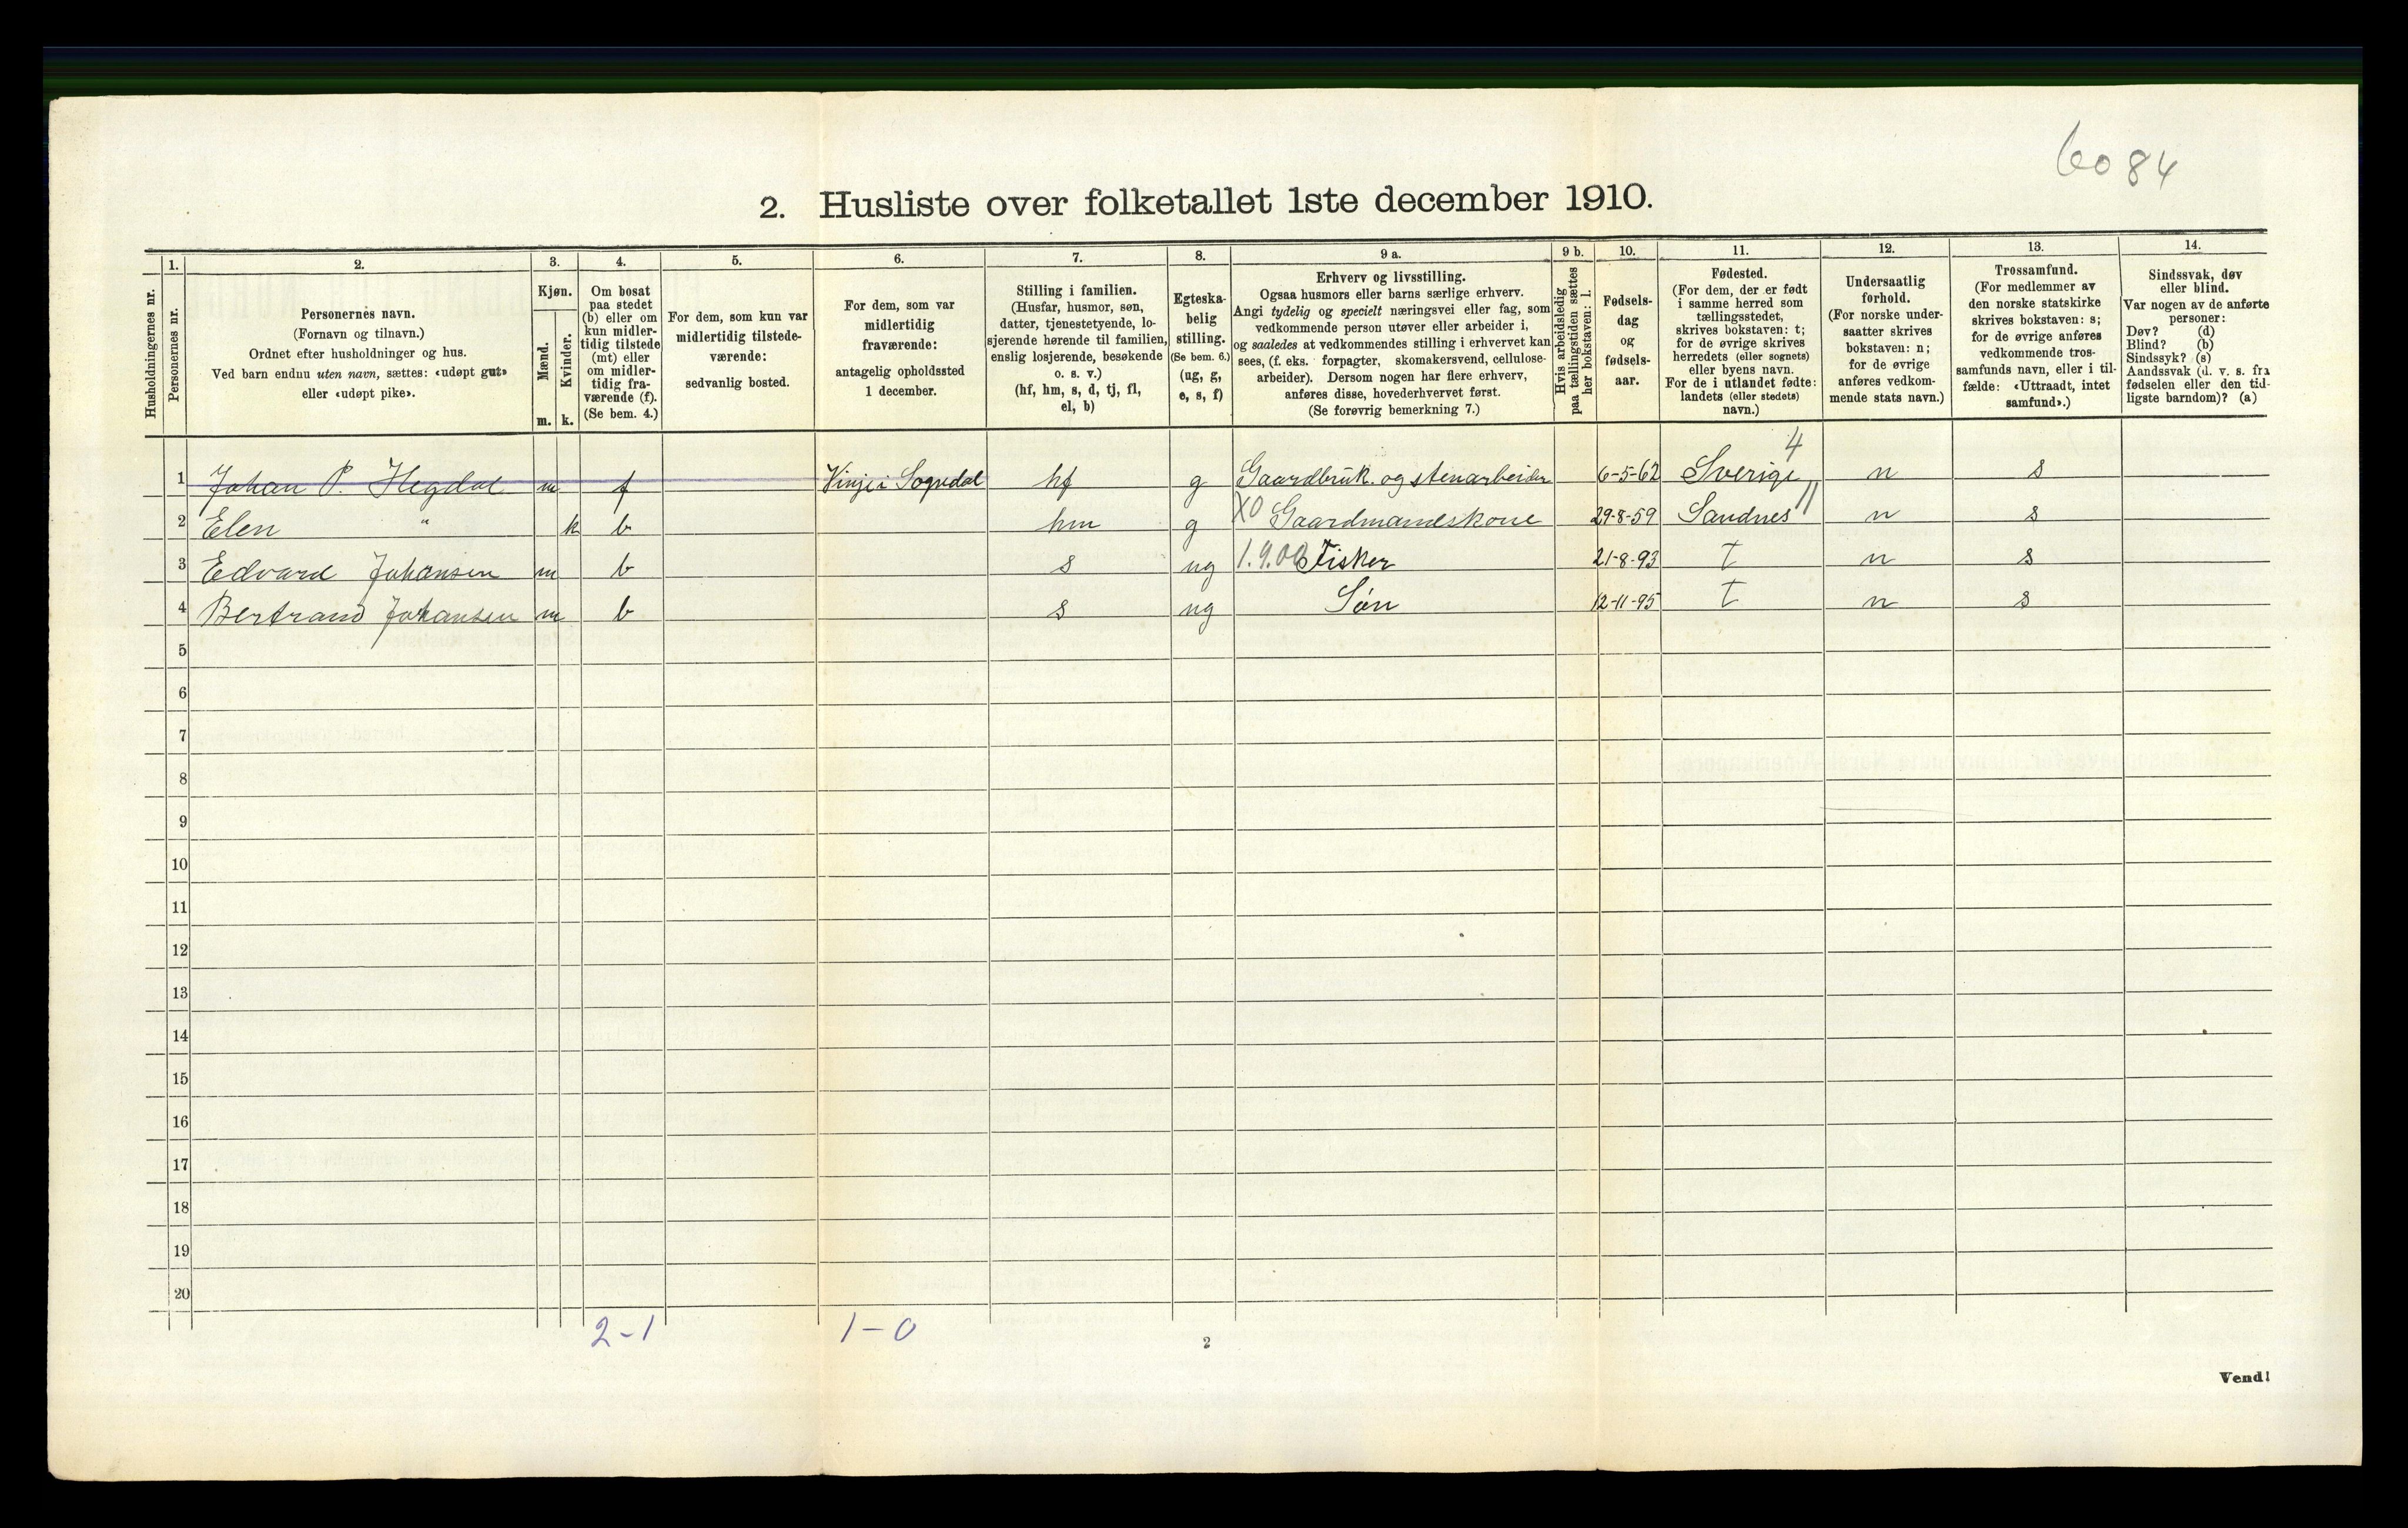 6084
2. Husliste over folketallet 1ste december 1910.
Husholdningernes nr.
1.
Personernes nr.
2.
Personernes navn.
(Fornavn og tilnavn.)
Ordnet efter husholdninger og hus.
Ved barn endnu uten navn, sættes: «udøpt gut»
eller «udøpt pike».
3.
Kjøn.
Mænd.
Kvinder.
m. k.
4.
Om bosat
paa stedet
(b) eller om
kun midler-
tidig tilstede
(mt) eller
om midler-
tidig fra-
værende (f).
(Se bem. 4.)
5.
For dem, som kun var
midlertidig tilstede-
værende:
sedvanlig bosted.
6.
For dem, som var
midlertidig
fraværende:
antagelig opholdssted
1 december.
7.
Stilling i familien.
(Husfar, husmor, søn,
datter, tjenestetyende, lo-
sjerende hørende til familien,
enslig losjerende, besøkende
o. s. v.)
(hf, hm, s, d, tj, fl,
el, b)
8.
Egteska-
belig
stilling.
(Se bem. 6.)
(ug, g,
e, s, f)
9 a.
Erhverv og livsstilling.
Ogsaa husmors eller barns særlige erhverv.
Angi tydelig og specielt næringsvei eller fag, som
vedkommende person utøver eller arbeider i,
og saaledes at vedkommendes stilling i erhvervet kan
sees, (f. eks. forpagter, skomakersvend, cellulose-
arbeider). Dersom nogen har flere erhverv,
anføres disse, hovederhvervet først.
(Se forøvrig bemerkning 7.)
9 b.
Hvis arbeidsledig
paa tællingstiden sættes
her bokstaven: l.
10.
Fødsels-
dag
og
fødsels-
aar.
11.
Fødested.
(For dem, der er født
i samme herred som
tællingsstedet,
skrives bokstaven: t;
for de øvrige skrives
herredets (eller sognets)
eller byens navn.
For de i utlandet fødte:
landets (eller stedets)
navn.)
12.
Undersaatlig
forhold.
(For norske under-
saatter skrives
bokstaven: n;
for de øvrige
anføres vedkom-
mende stats navn.)
13.
Trossamfund.
(For medlemmer av
den norske statskirke
skrives bokstaven: s;
for de øvrige anføres
vedkommende tros-
samfunds navn, eller i til-
fælde: «Uttraadt, intet
samfund».)
14.
Sindssvak, døv
eller blind.
Var nogen av de anførte
personer:
Døv? (d)
Blind? (b)
Sindssyk? (s)
Aandssvak (d. v. s. fra
fødselen eller den tid-
ligste barndom)? (a)
4
1 Johan P. Hegdal m f Vinje i Sogndal hf g Gaardbruk. og stenarbeider 6-5-62 Sverige n s
2 Elen " k b hm g X0 Gaardmandskone 29-8-59 Sandnes 11 n s
3 Edvard Johansen m b s ug 1.9.00 Fisker 21-8-93 t n s
4 Bertrand Johansen m b s ug Søn 12-11-95 t n s
5
6
7
8
9
10
11
12
13
14
15
16
17
18
19
20
2-1 1-0
2
Vend!